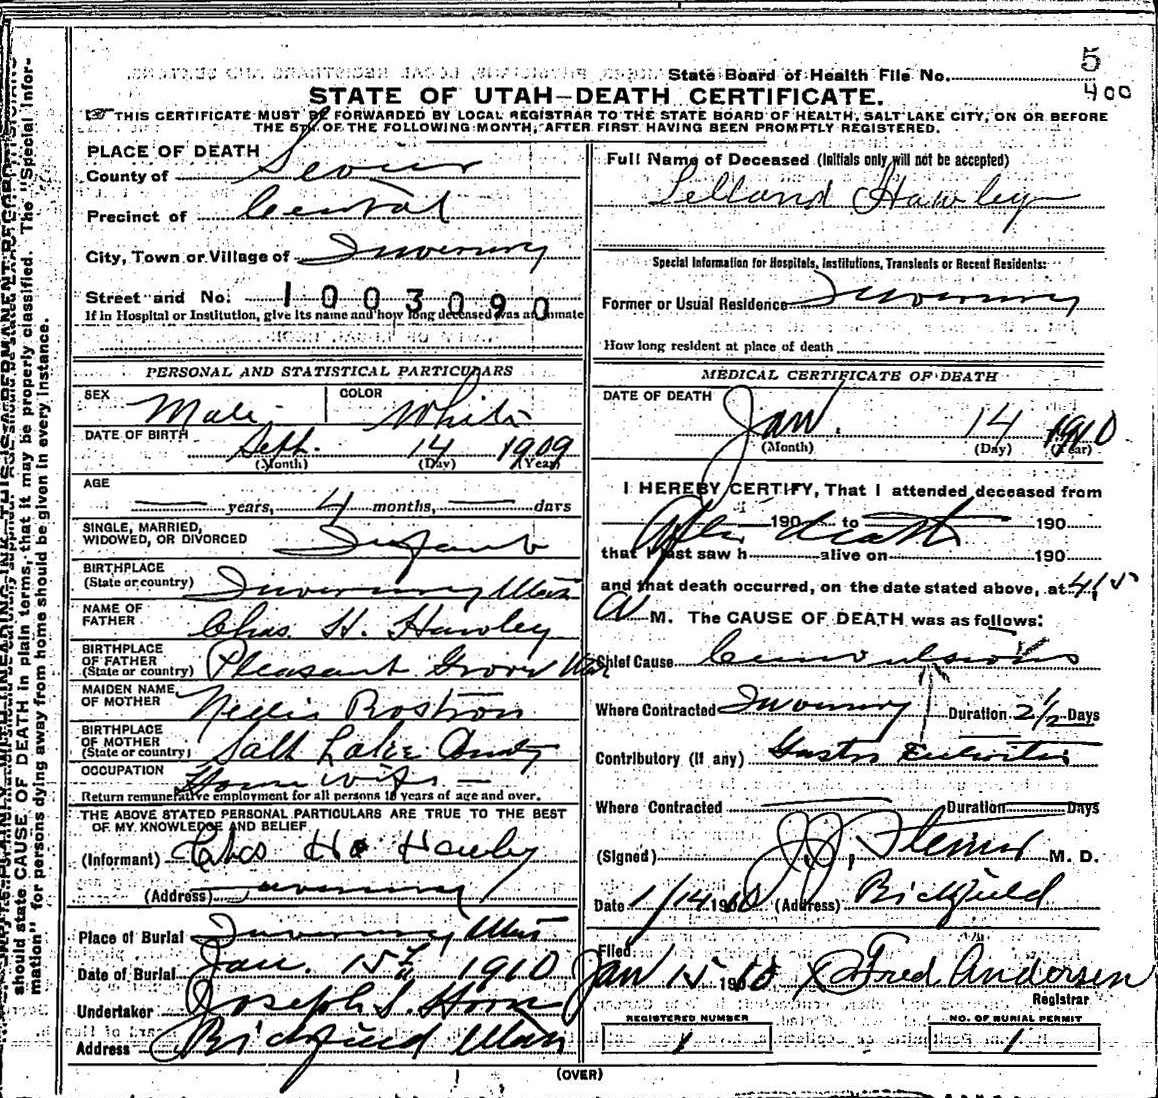 5
State Board of Health File No. 400
STATE OF UTAH—DEATH CERTIFICATE.
THIS CERTIFICATE MUST BE FORWARDED BY LOCAL REGISTRAR TO THE STATE BOARD OF HEALTH, SALT LAKE CITY, ON OR BEFORE
THE 5th OF THE FOLLOWING MONTH, AFTER FIRST HAVING BEEN PROMPTLY REGISTERED.
PLACE OF DEATH
County of Sevier
Precinct of Central
City, Town or Village of Inverury
Street and No. 1003090
If in Hospital or Institution, give its name and how long deceased was an inmate
Full Name of Deceased (Initials only will not be accepted)
Lelland Hawley
Special Information for Hospitals, Institutions, Transients or Recent Residents:
Former or Usual Residence Inverury
How long resident at place of death
PERSONAL AND STATISTICAL PARTICULARS
SEX Male COLOR White
DATE OF BIRTH Sept. 14 1909
(Month) (Day) (Year)
AGE
years, 4 months, days
SINGLE, MARRIED,
WIDOWED, OR DIVORCED Infant
BIRTHPLACE
(State or country) Inverury Utah
NAME OF
FATHER Chas. H. Hawley
BIRTHPLACE
OF FATHER
(State or country) Pleasant Grove Utah
MAIDEN NAME
OF MOTHER Nellie Rostron
BIRTHPLACE
OF MOTHER
(State or country) Salt Lake County
OCCUPATION
House wife
Return remunerative employment for all persons 10 years of age and over.
THE ABOVE STATED PERSONAL PARTICULARS ARE TRUE TO THE BEST
OF MY KNOWLEDGE AND BELIEF
(Informant) Chas H Hawley
(Address) Inverury
Place of Burial Inverury Utah
Date of Burial Jan. 15th 1910
Undertaker Joseph S. Horn
Address Richfield Utah
MEDICAL CERTIFICATE OF DEATH
DATE OF DEATH
Jan. 14 1910
(Month) (Day) (Year)
I HEREBY CERTIFY, That I attended deceased from
After 190 to death 190
that I last saw h alive on 190
and that death occurred, on the date stated above, at 4/15
A M. The CAUSE OF DEATH was as follows:
Chief Cause Convulsions
Where Contracted Inverury Duration 2 1/2 Days
Contributory (if any) Gastro Enteritis
Where Contracted Duration Days
(Signed) J.J. Steiner M. D.
Date 1/14 1910 (Address) Richfield
Filed
Jan 15 1910 Fred Andersen
Registrar
REGISTERED NUMBER
1
NO. OF BURIAL PERMIT
1
(OVER)
should state CAUSE OF DEATH in plain terms, that it may be properly classified. The "Special Infor-
mation" for persons dying away from home should be given in every instance.